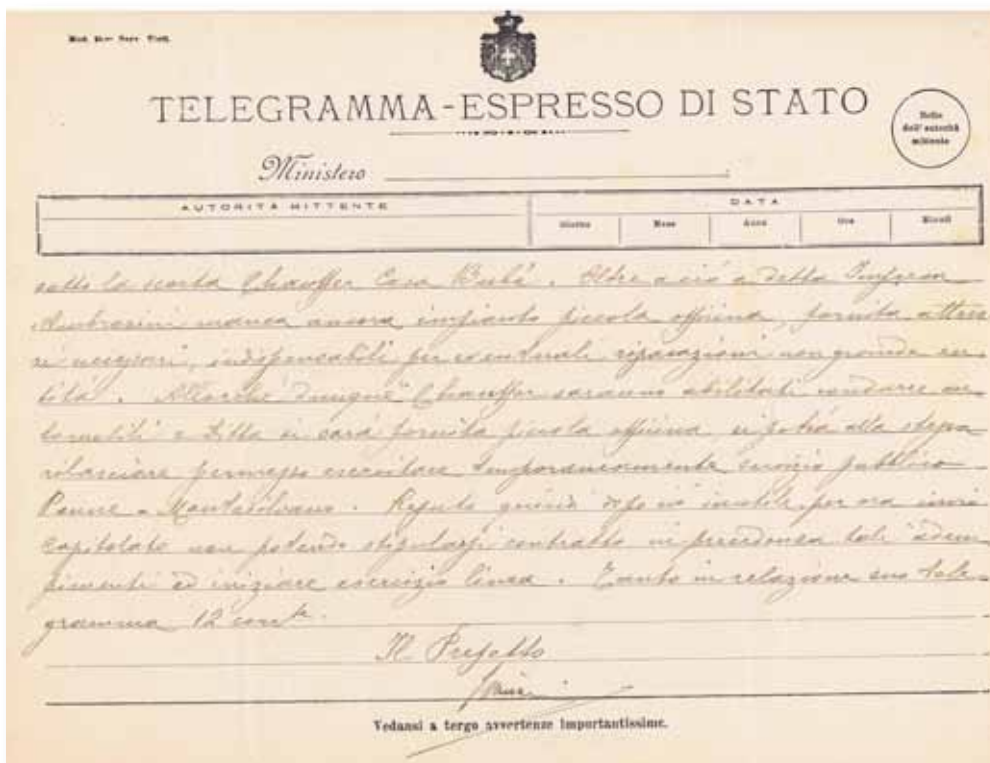 TELEGRAMMA-ESPRESSO DI STATO
Bollo
dell'autorità
mittente
Ministero
AUTORITÀ MITTENTE
DATA
Giorno Mese Anno Ora Minuti
sotto la scorta Chauffer Casa . Oltre a ciò a detta
Ambrosini manca ancora impianto piccola officina, fornita attrez
zi necessari, indispensabili per eventuali riparazioni non grande en
tità. Allorchè dunque Chauffer saranno abilitati condurre au
tomobili e Ditta si sarà fornita piccola officina, si potrà alla stessa
rilasciare permesso esercitare temporaneamente servizio pubblico
Penne - Montesilvano. Reputo quindi inutile per ora invio
capitolato non potendo stipularsi contratto in precedenza tali adem
pimenti ed iniziare esercizio linea. Tanto in relazione suo tele-
gramma 12 corr.te
Il Prefetto
Vedansi a tergo avvertenze importantissime.